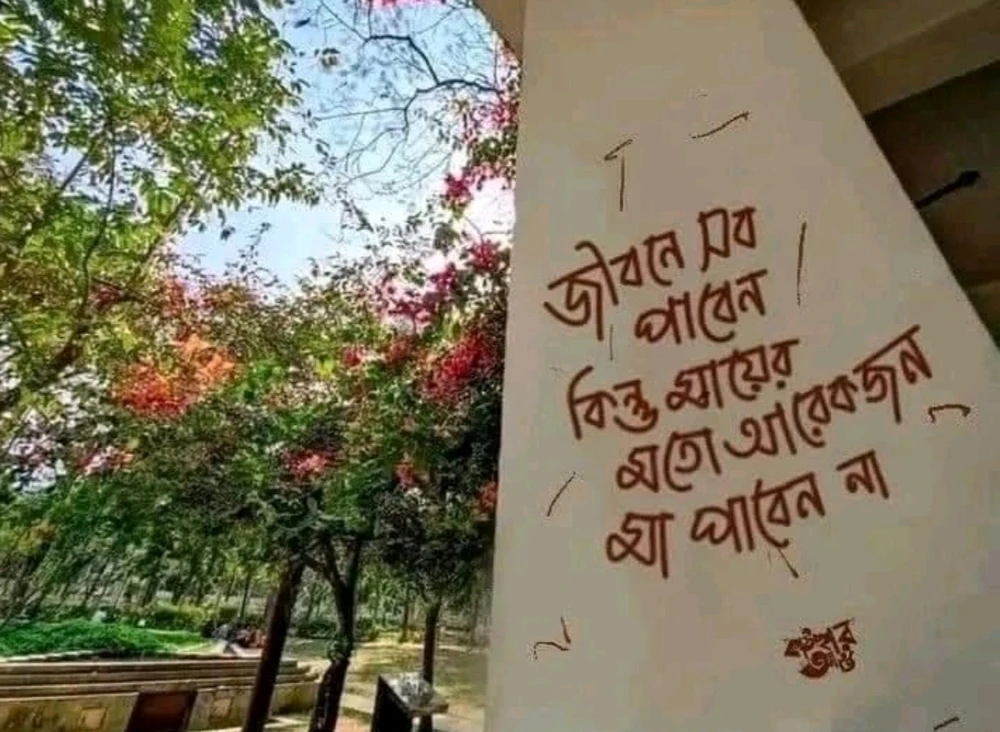 জীবনে সব
পাবেন
কিন্তু মায়ের
মতো আরেকজন
মা পাবেন না